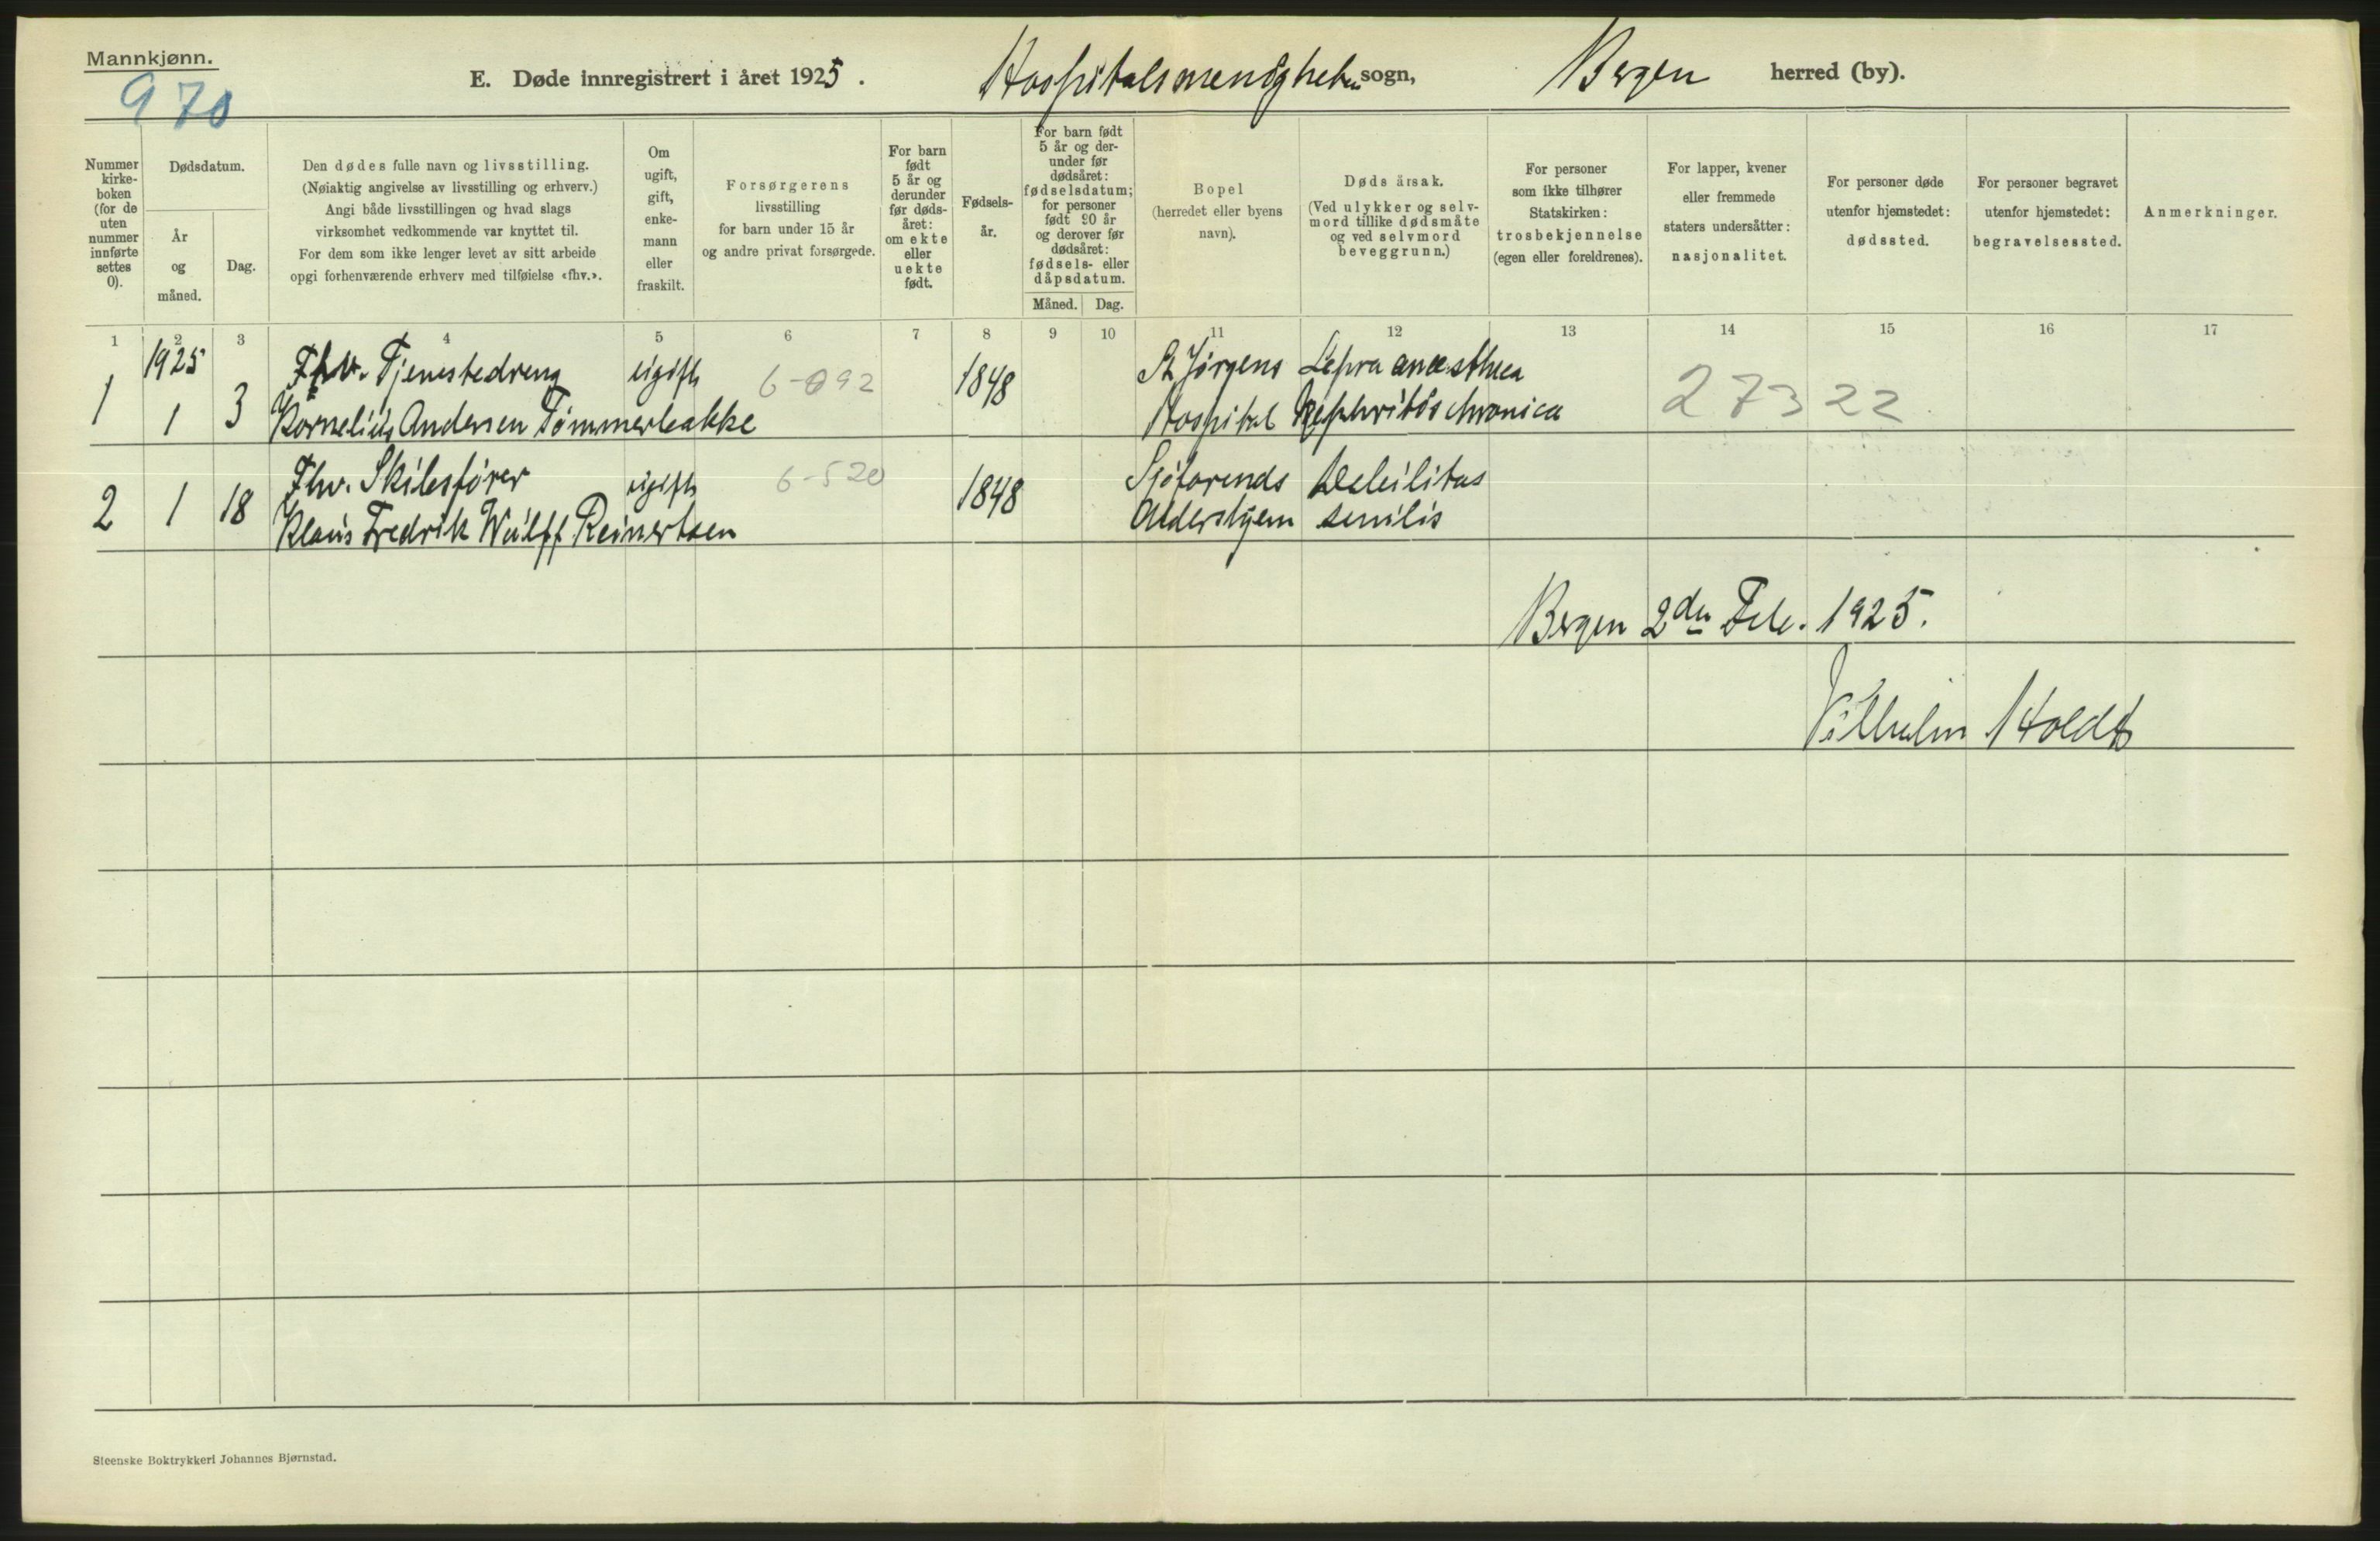 Mannkjønn.
970
E. Døde innregistrert i året 1925.
Hospitalsmenigheten sogn,
Bergen herred (by).
Nummer
kirke-
boken
(for de
uten
nummer
innførte
settes
0).
Dødsdatum.
År
og
måned.
Dag.
Den dødes fulle navn og livsstilling.
(Nøiaktig angivelse av livsstilling og erhverv.)
Angi både livsstillingen og hvad slags
virksomhet vedkommende var knyttet til.
For dem som ikke lenger levet av sitt arbeide
opgi forhenværende erhverv med tilføielse «fhv.».
Om
ugift,
gift,
enke-
mann
eller
fraskilt.
Forsørgerens
livsstilling
for barn under 15 år
og andre privat forsørgede.
For barn
født
5 år og
derunder
før døds-
året:
om ekte
eller
uekte
født.
Fødsels-
år.
For barn født
5 år og der-
under før
dødsåret:
fødselsdatum;
for personer
født 90 år
og derover før
dødsåret:
fødsels- eller
dåpsdatum.
Måned. Dag.
Bopel
(herredet eller byens
navn).
Dødsårsak.
(Ved ulykker og selv-
mord tillike dødsmåte
og ved selvmord
beveggrunn.)
For personer
som ikke tilhører
Statskirken:
trosbekjennelse
(egen eller foreldrenes).
For lapper, kvener
eller fremmede
staters undersåtter:
nasjonalitet.
For personer døde
utenfor hjemstedet:
dødssted.
For personer begravet
utenfor hjemstedet:
begravelsessted.
Anmerkninger.
1 2 3 4 5 6 7 8 9 10 11 12 13 14 15 16 17
1925 Fhv. Tjenestedreng ugift 6-092 1848 St Jørgens Lepra anæsthea 27322
1 1 3 Kornelius Andersen Tømmerbakke Hospital Nephritis chronica
Fhv. Skibsfører ugift 6-520 1848 Sjøfarends Debilitas
2 1 18 Klaus Fredrik Wulff Reinertsen Aldershjem senilis
Bergen 2den Feb. 1925.
Vilhelm Holdt
Steenske Boktrykkeri Johannes Bjørnstad.